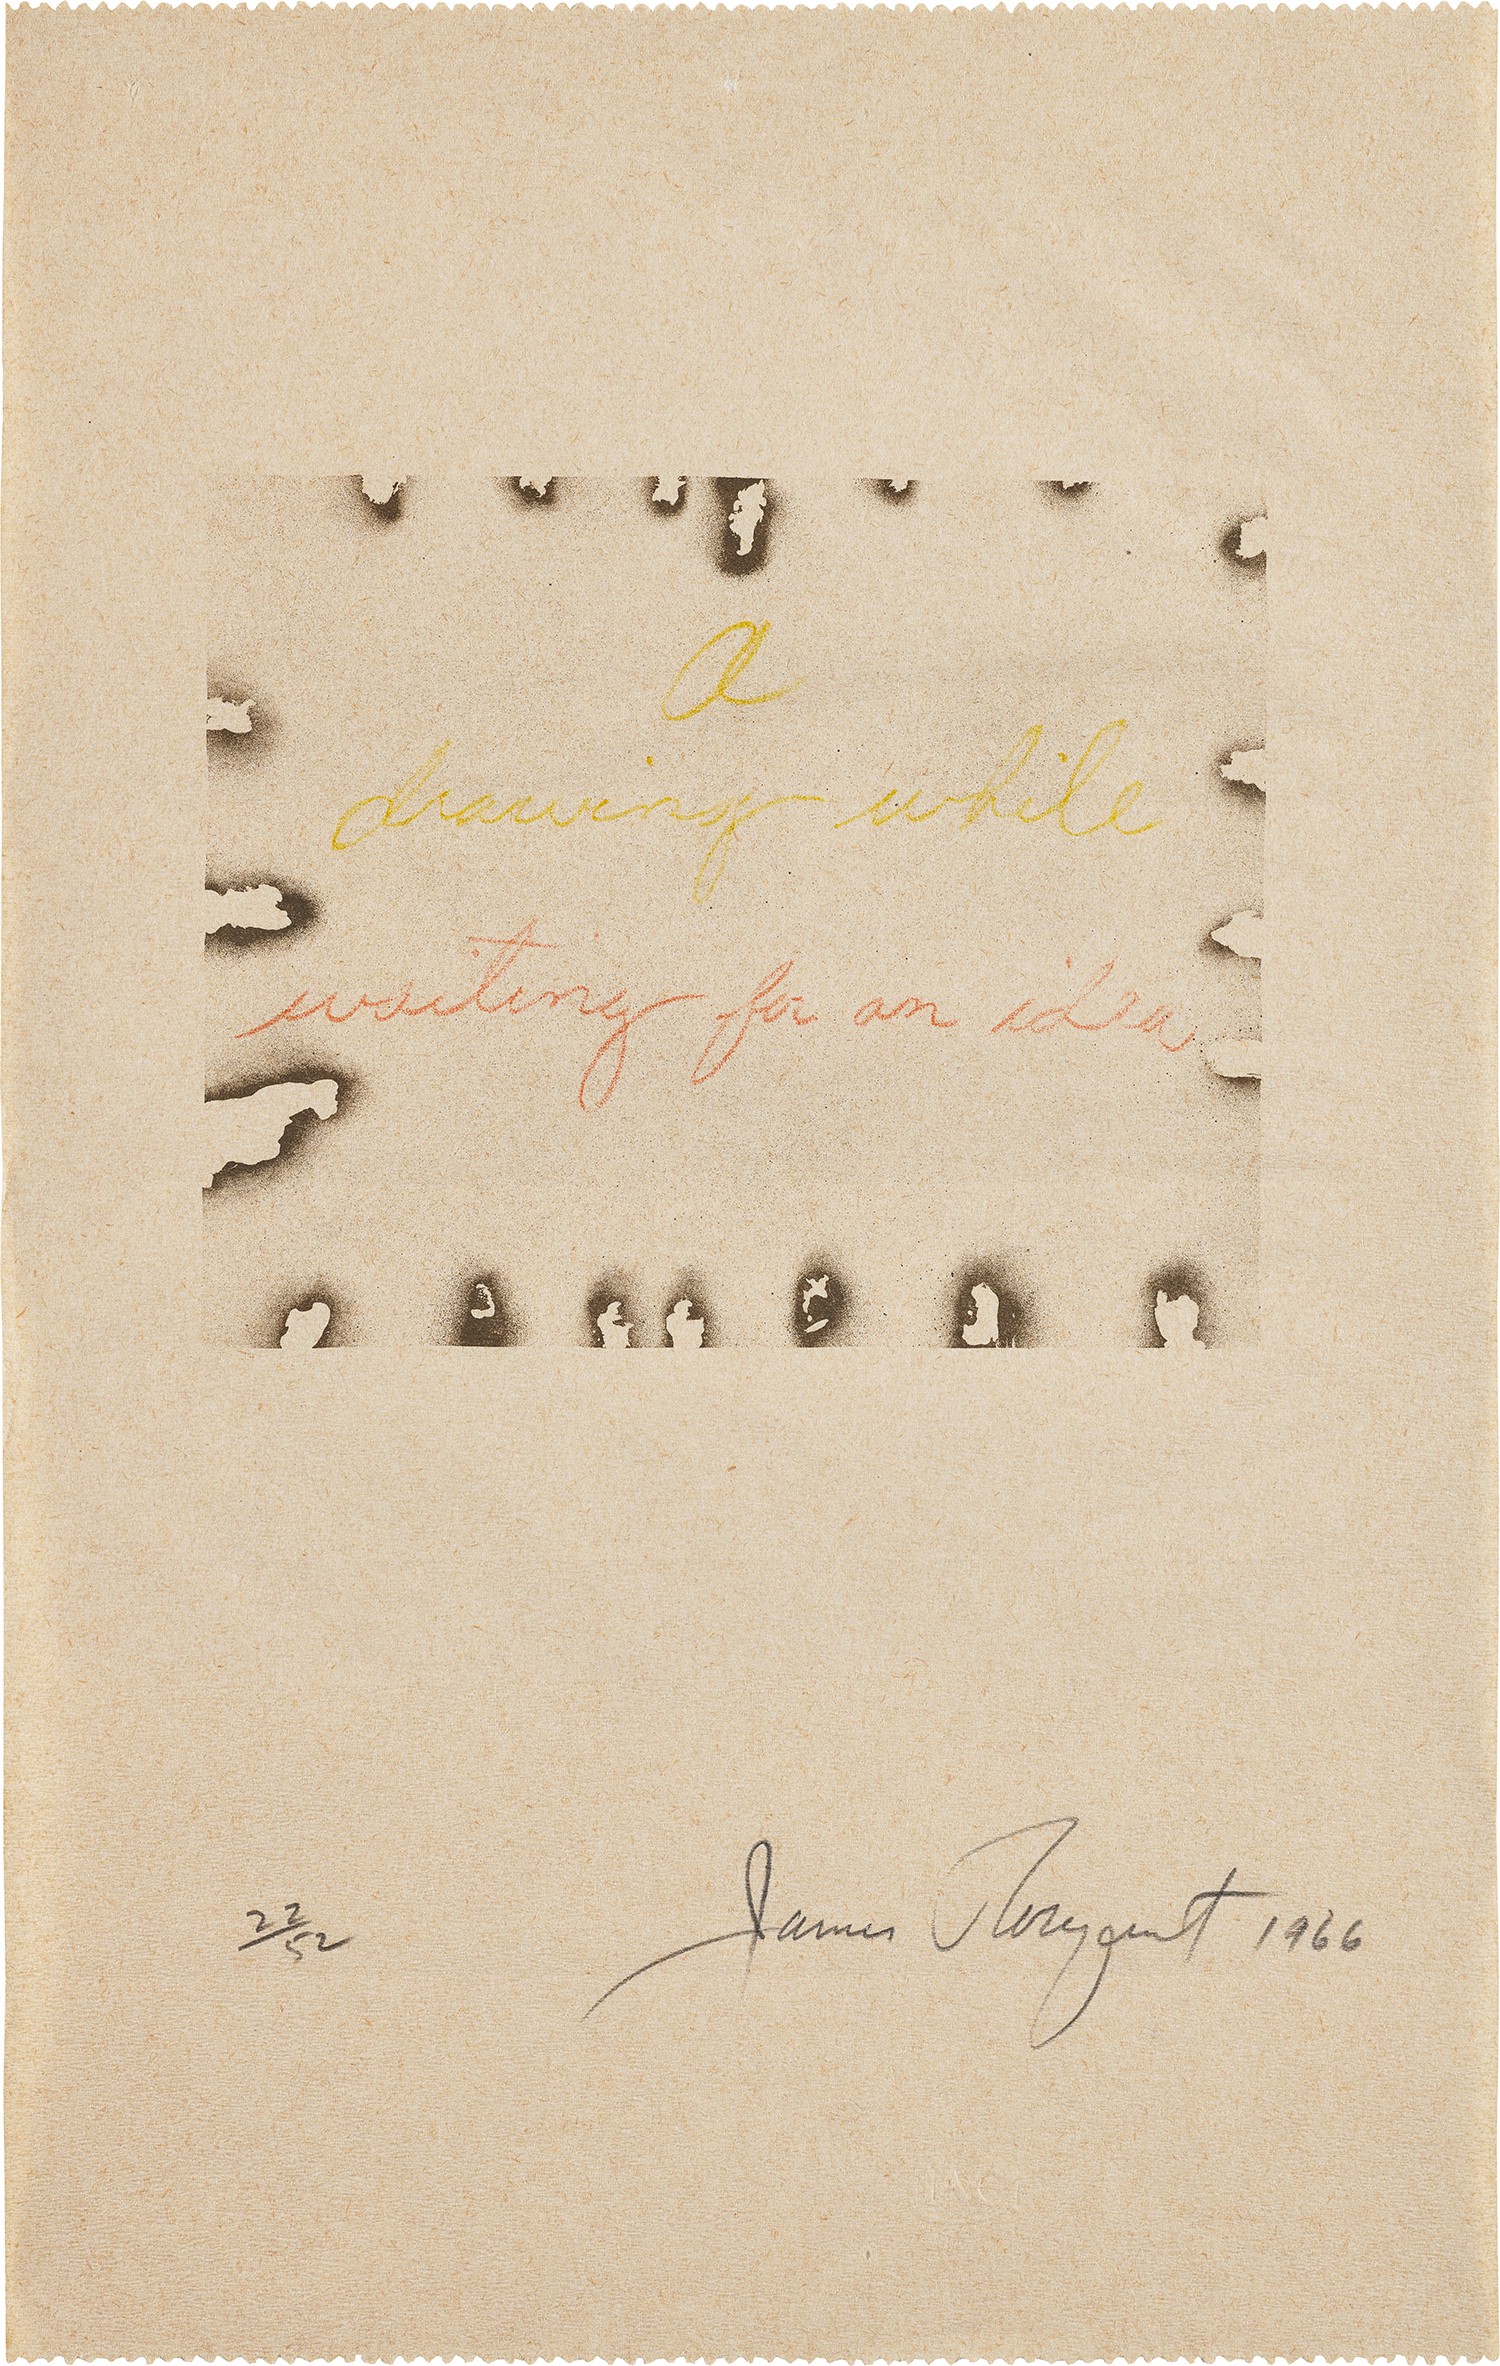 a
drawing while
waiting for an idea
22/52
James Rosenquist 1966